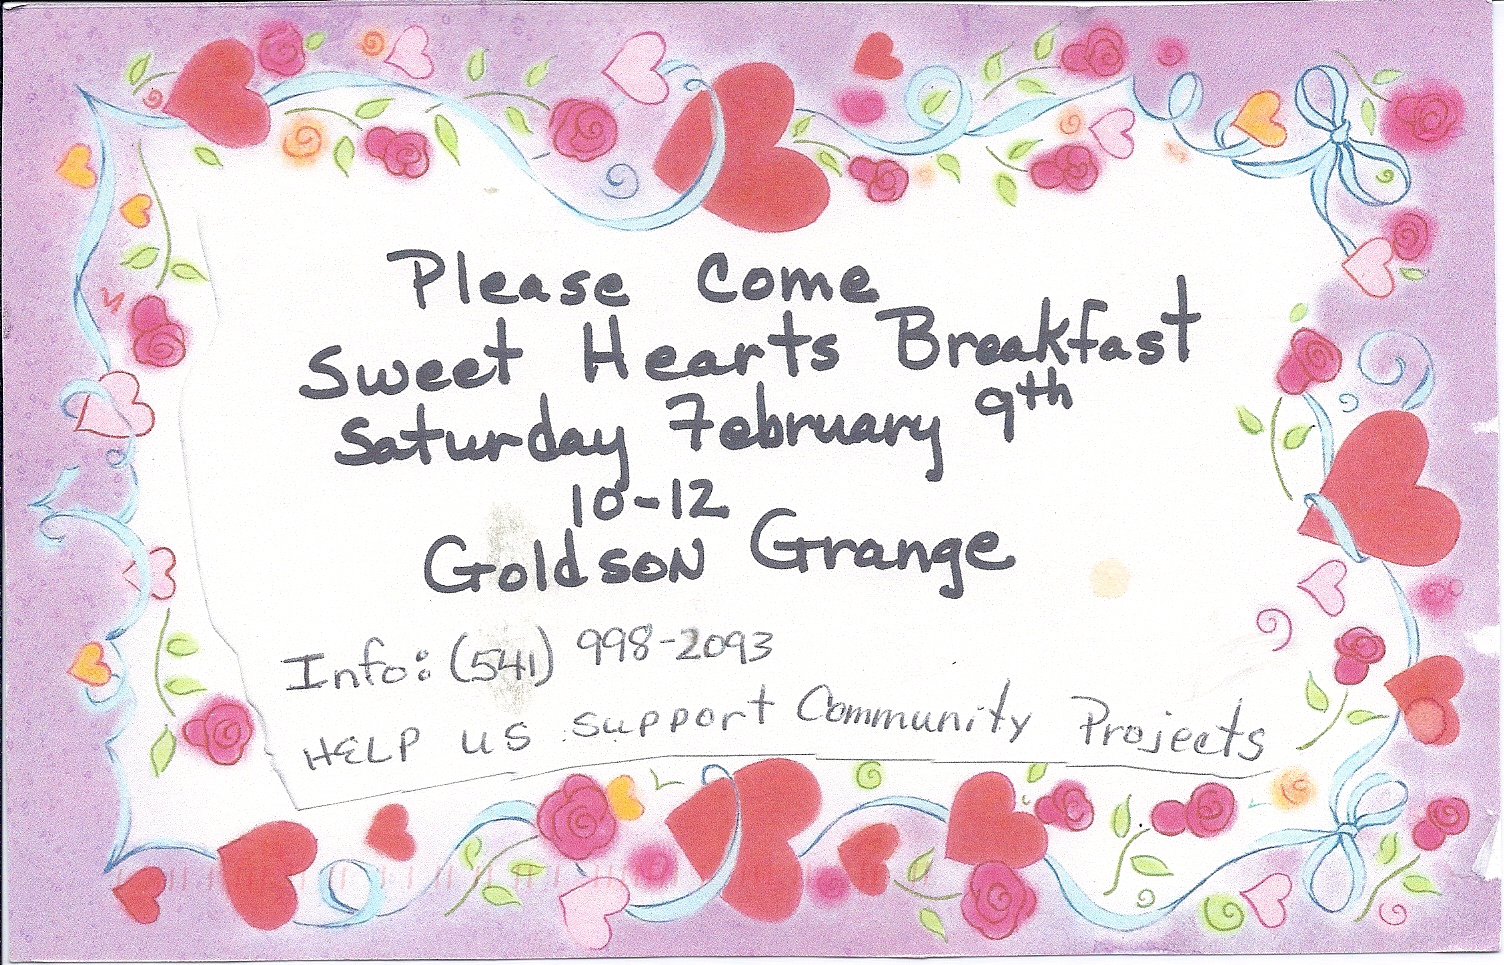 Please Come
Sweet Hearts Breakfast
Saturday February 9th
10-12
Goldson Grange
Info: (541) 998-2093
HELP US Support Community Projects